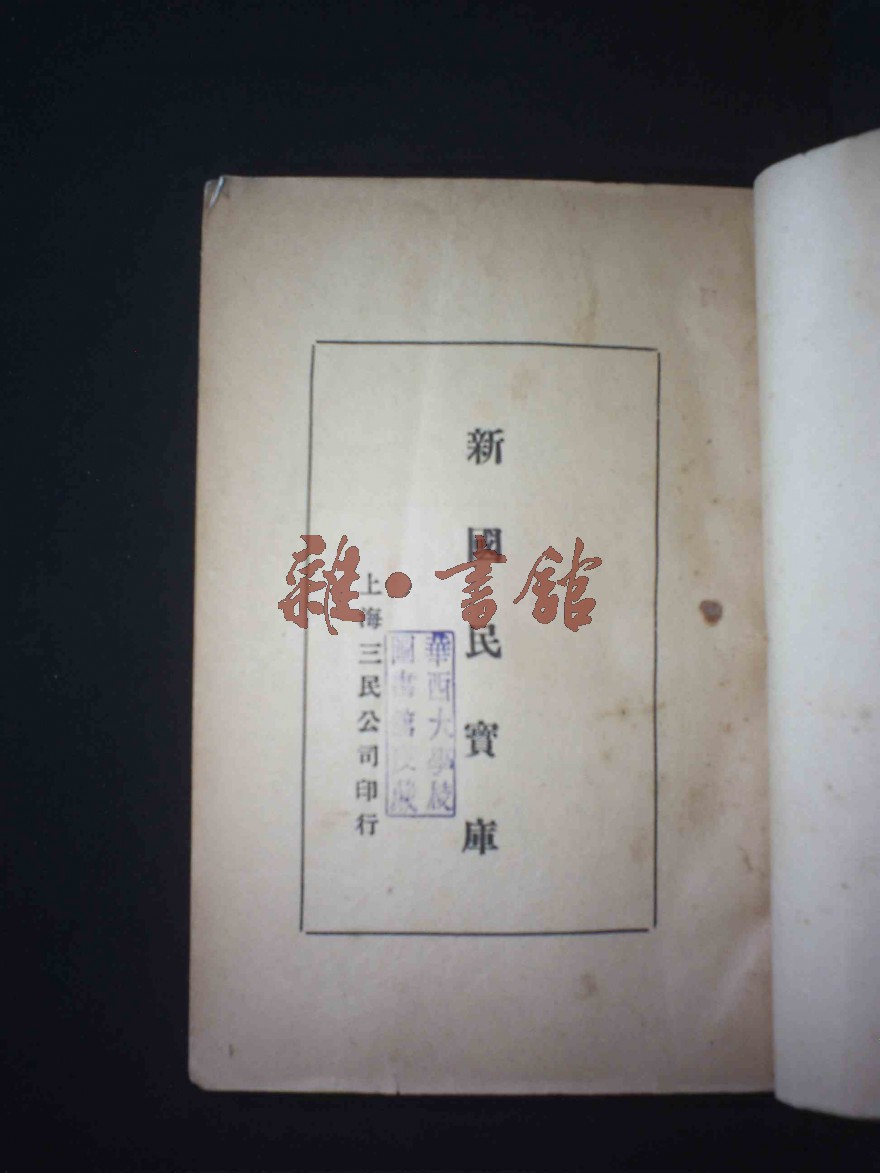 新國民寶庫
上海三民公司印行
華西大學校
圖書館收藏
雜·書館